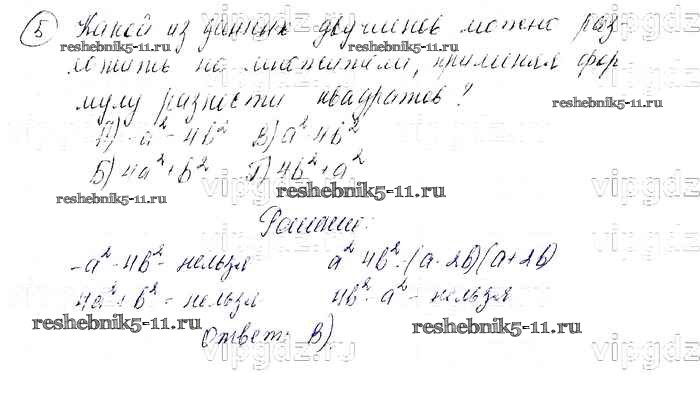 5 Какой из данных двучленов можно раз
ложить на множители, применяя фор
мулу разности квадратов?
А) -a² - 4b² В) a² - 4b²
Б) 4a² + b² Г) 4b² + a²
Решение:
-a² - 4b² - нельзя a² 4b² = (a - 2b)(a + 2b)
4a² + b² - нельзя 4b² - a² - нельзя
Ответ: В).
reshebnik5-11.ru
reshebnik5-11.ru
reshebnik5-11.ru
reshebnik5-11.ru
reshebnik5-11.ru
reshebnik5-11.ru
reshebnik5-11.ru
vipgdz
vipgdz
vipgdz
vipgdz